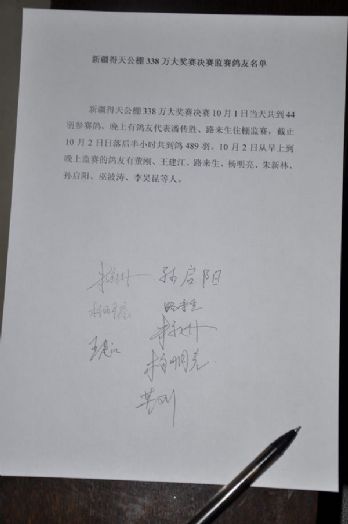 新疆得天公棚338万大奖赛决赛监赛鸽友名单
新疆得天公棚338万大奖赛决赛10月1日当天共到44
羽参赛鸽。晚上有鸽友代表潘传胜、路来生住棚监赛，截止
10月2日日落后半小时共到鸽489羽。10月2日从早上到
晚上监赛的鸽友有董刚、王建江、路来生、杨明亮、朱新林、
孙启阳、巫被涛、李昊昆等人。
朱新林 孙启阳
路来生
王建江
杨明亮
董刚